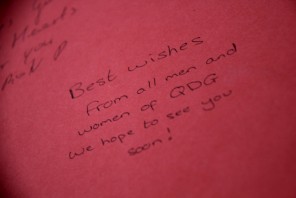 Hearts
Best wishes
from all men and
women of QDG
we hope to see you
soon!